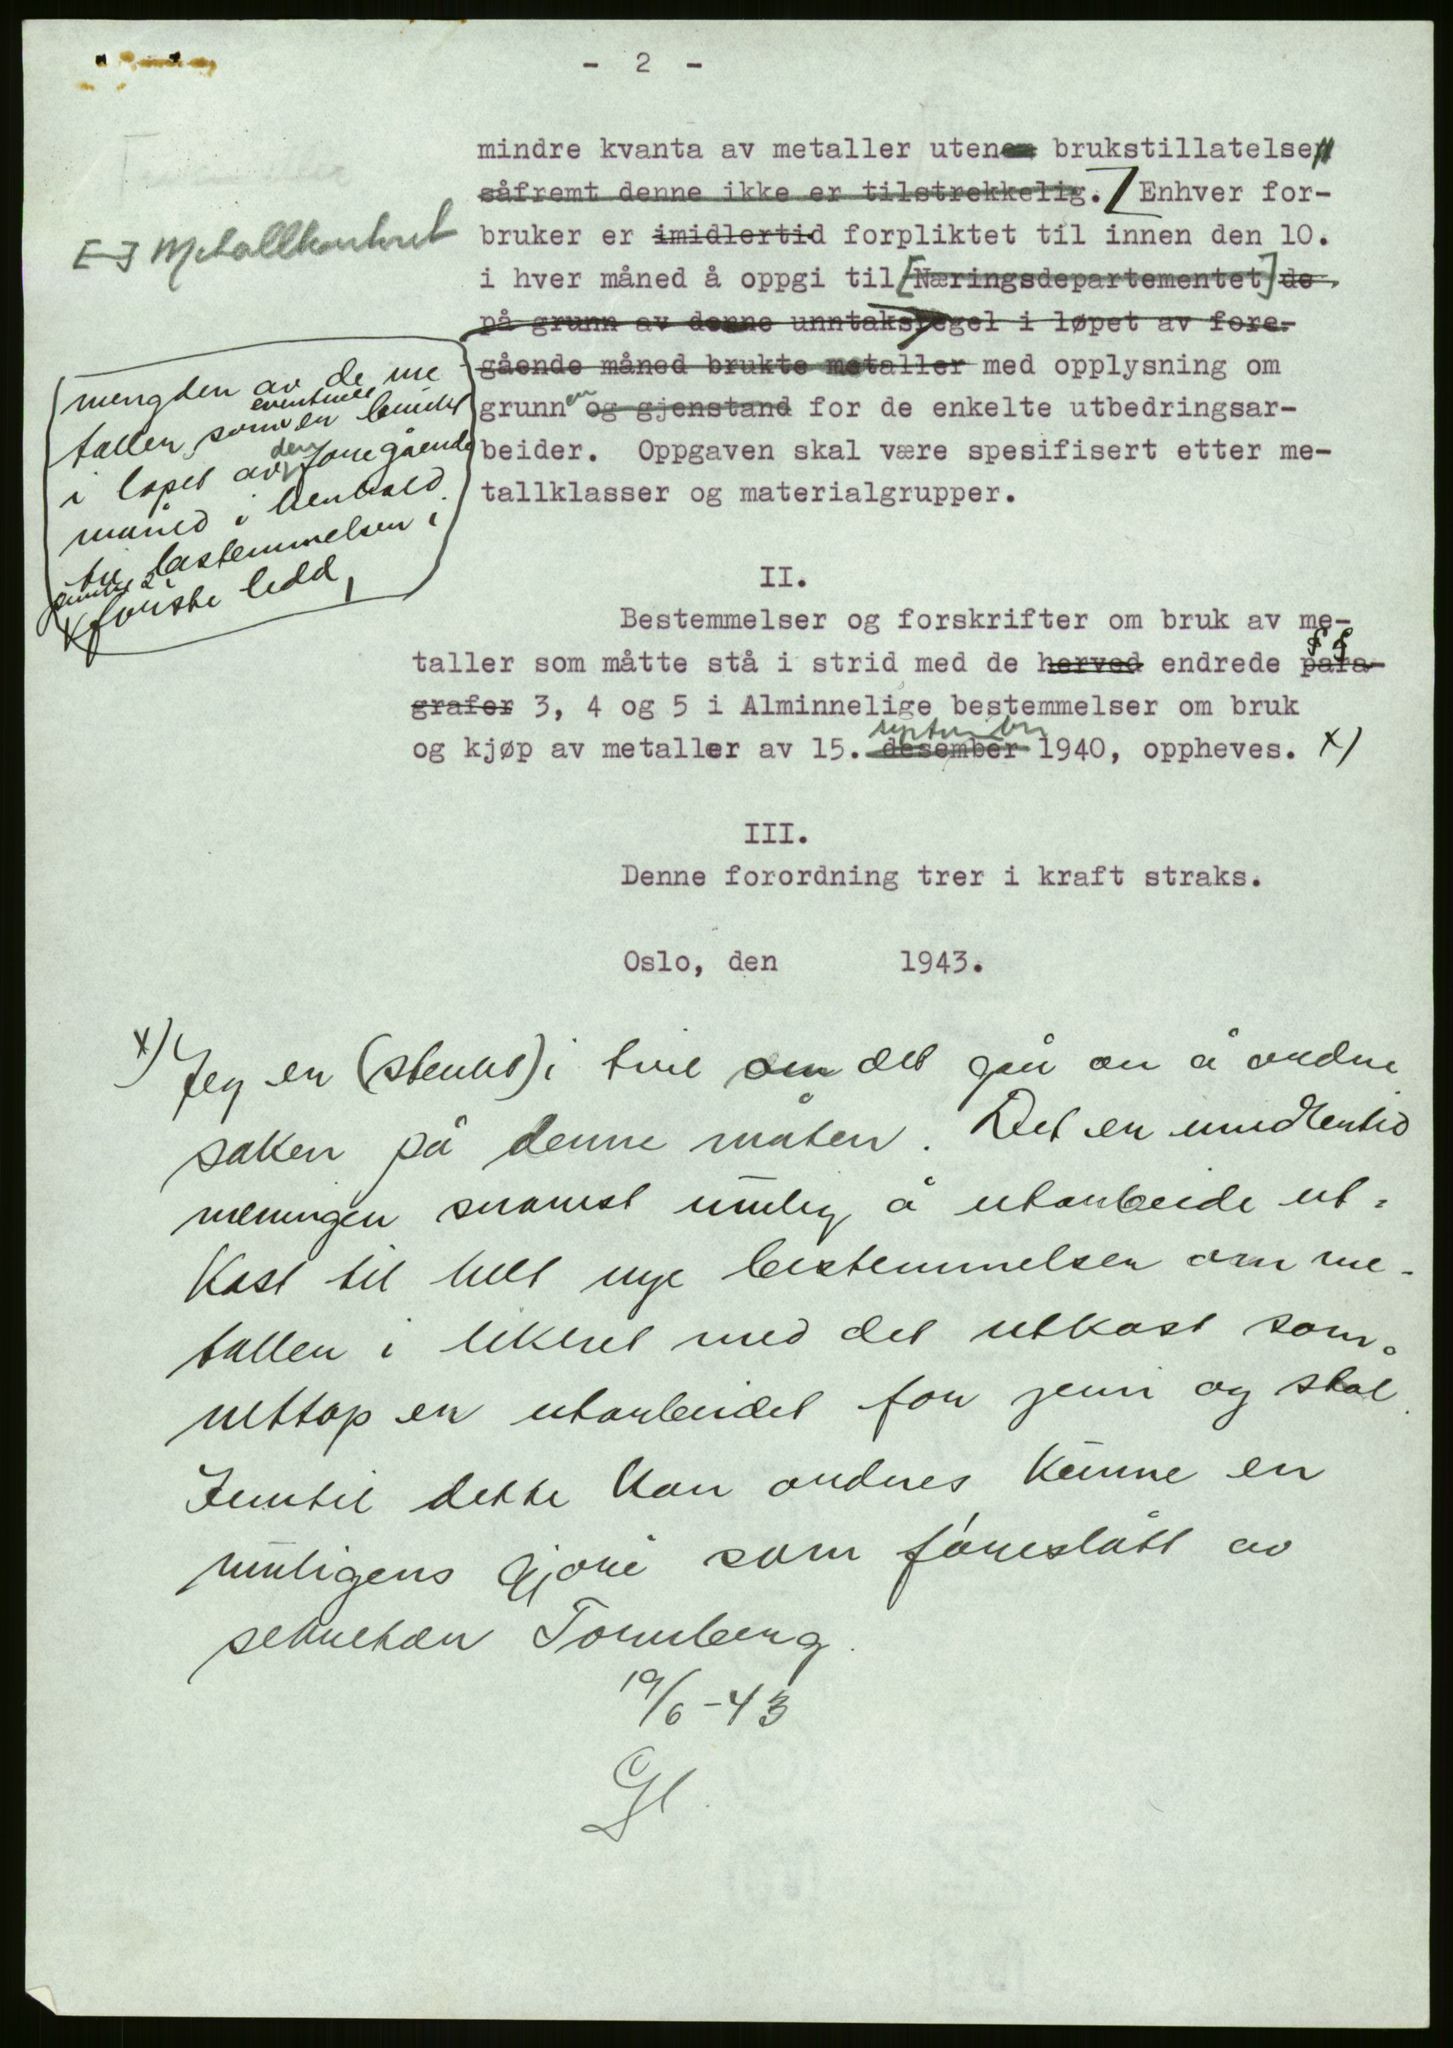 - 2 -
mindre kvanta av metaller uten en brukstillatelse
såfremt denne ikke er tilstrekkelig. Enhver for-
bruker er imidlertid forpliktet til innen den 10.
i hver måned å oppgi til [Næringsdepartementet] de
på grunn av denne unntaksregel i løpet av fore-
gående måned brukte metaller med opplysning om
grunnen og gjenstand for de enkelte utbedringsar-
beider. Oppgaven skal være spesifisert etter me-
tallklasser og materialgrupper.
[-] Metallkontoret
mengden av de me
taller som eventuelt er brukt
i løpet av den foregående
måned i henhold
til bestemmelsen i
punkt 2
første ledd,
II.
Bestemmelser og forskrifter om bruk av me-
§ §
taller som måtte stå i strid med de herved endrede para-
grafer 3, 4 og 5 i Alminnelige bestemmelser om bruk
september
og kjøp av metaller av 15. desember 1940, oppheves. x)
III.
Denne forordning trer i kraft straks.
Oslo, den 1943.
x) Jeg er (sterkt) i tvil om det går an å ordne
saken på denne måten. Det er imidlertid
meningen snarest mulig å utarbeide ut-
kast til helt nye bestemmelser om me-
taller i likhet med det utkast som
nettop er utarbeidet for jern og stål.
Inntil dette kan ordnes kunne en
muligens gjøre som foreslått av
sekretær Tornberg.
19/6-43
Gl.